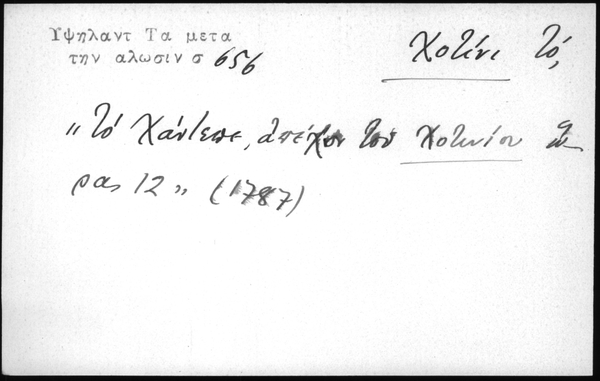 Υψηλαντ Τα μετα
την αλωσιν σ 656
Χοτίνι τό,
"τό Χάντεπε, ἀπέχον τοῦ Χοτινίου ὥ-
ρας 12" (1787)